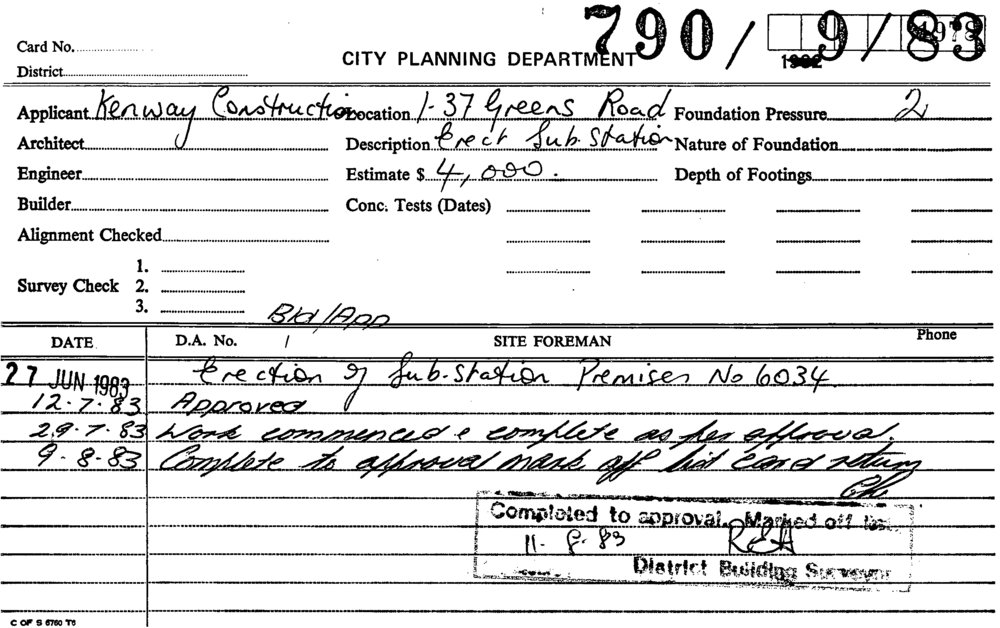 790/9/83
1978
1982
Card No.
CITY PLANNING DEPARTMENT
District
Applicant Kenway Construction Location 1-37 Greens Road Foundation Pressure 2
Architect Description Erect Sub. Station Nature of Foundation
Engineer Estimate $ 4,000. Depth of Footings
Builder Conc. Tests (Dates)
Alignment Checked
1.
Survey Check 2.
3.
Bld/App
DATE D.A. No. SITE FOREMAN Phone
27 JUN 1983 Erection of Sub-Station Premises No 6034
12.7.83 Approved
29.7.83 Work commenced & complete as per approval.
9.8.83 Complete to approval mark off list card return
Completed to approval. Marked off list
11.8.83 REA
District Building Surveyor
C OF S 6760 T6